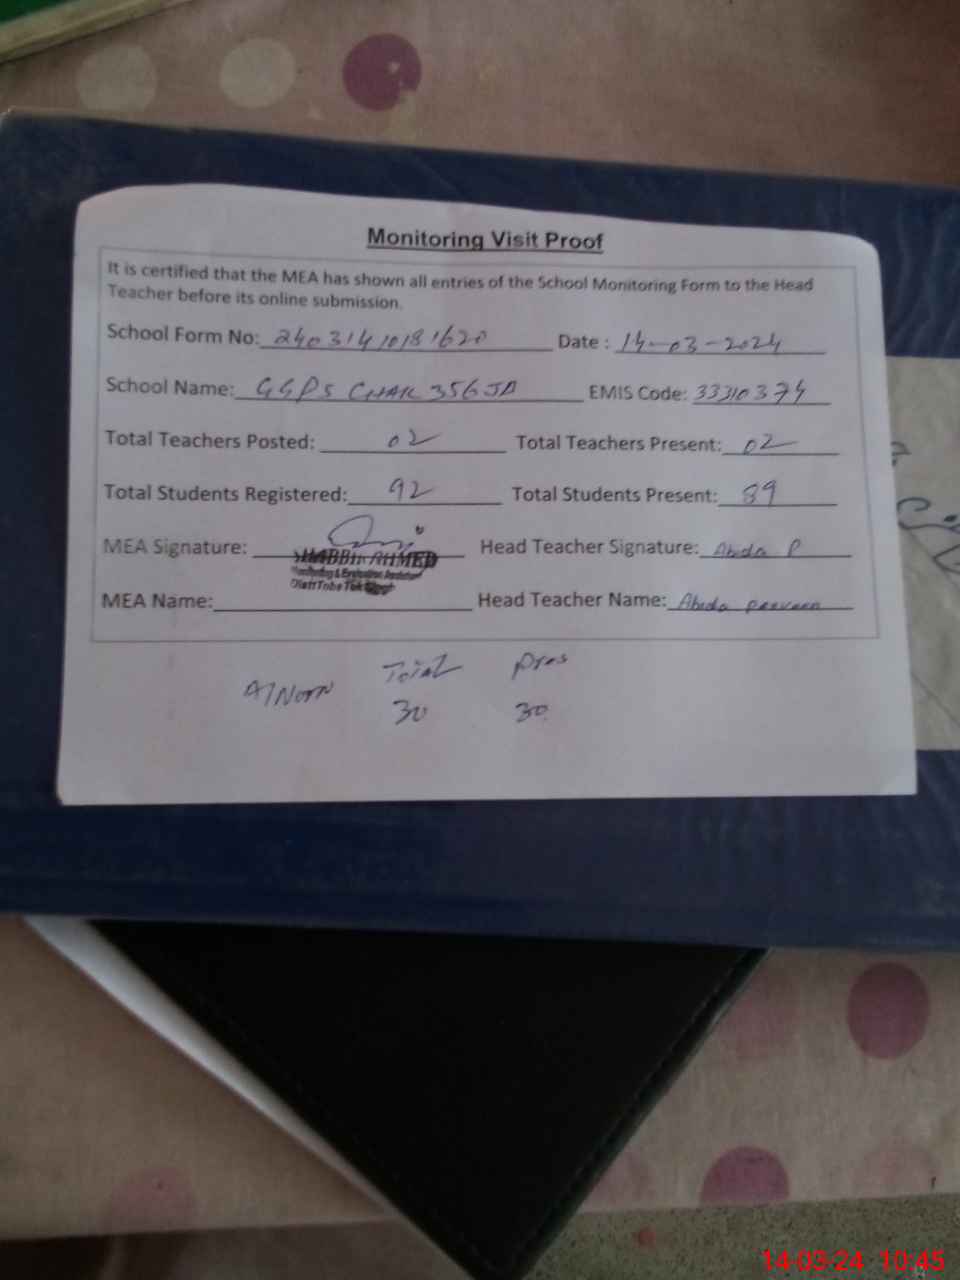 Monitoring Visit Proof
It is certified that the MEA has shown all entries of the School Monitoring Form to the Head
Teacher before its online submission.
School Form No: 24031410181620 Date : 14-03-2024
School Name: GGPS CHAK 356 JB EMIS Code: 33310374
Total Teachers Posted: 02 Total Teachers Present: 02
Total Students Registered: 92 Total Students Present: 89
MEA Signature: Head Teacher Signature: Abida P
AHMED
Monitoring & Evaluation Assistant
MEA Name: Head Teacher Name: Abida Parveen
Total Pres
30 30
14-03-24 10:45